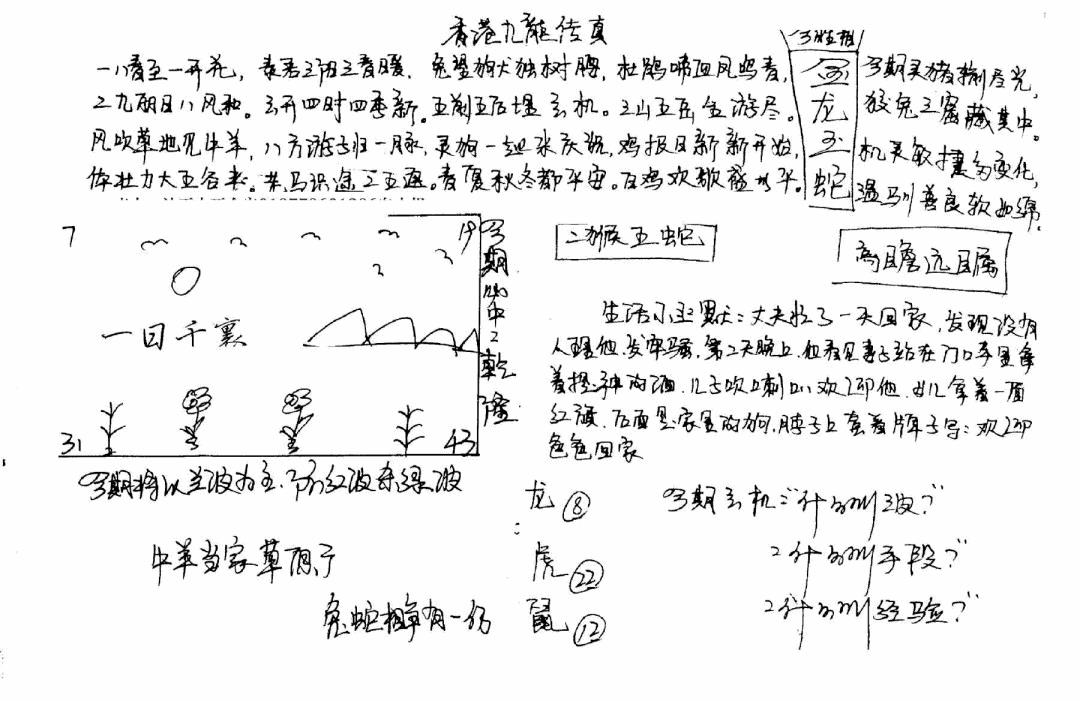 香港九龍传真
一八看至一开花，泰老三阳三春暖，兔望狗犬独树脾，杜鹃啼血凤鸣春，
二九朝日八风和。云开四时四季新。五削五后堪玄机。三山五岳金游尽。
风吹草地见牛羊，八方游子归一脉，灵狗一起来庆祝，鸡报日新新开始，
体壮力大五谷来。老马识途工五通。春夏秋冬都平安。百鸡欢歌盛水平。
今期灵猪输尽光，
狡兔三窟藏其中。
机灵敏捷多变化，
温驯善良软如绵。
金
龙
玉
蛇
7
19
31
43
一日千裏
今期心中之乾隆
二猴五蛇
高瞻远瞩
生活小幽默：丈夫忙了一天回家，发现没有
人理他，发牢骚，第2天晚上，他看见妻子站在门口手里拿
着的酒，儿子吹喇叭欢迎他，女儿拿着一面
红旗，后面是家里的狗，脖子上套着牌子写：欢迎
爸爸回家
今期将以兰波为主，防红波杂绿波
牛羊当家草有了
兔蛇相争有一份
龙⑧
虎㉒
鼠⑫
今期玄机："什么叫波？"
"什么叫手段？"
"什么叫经验？"